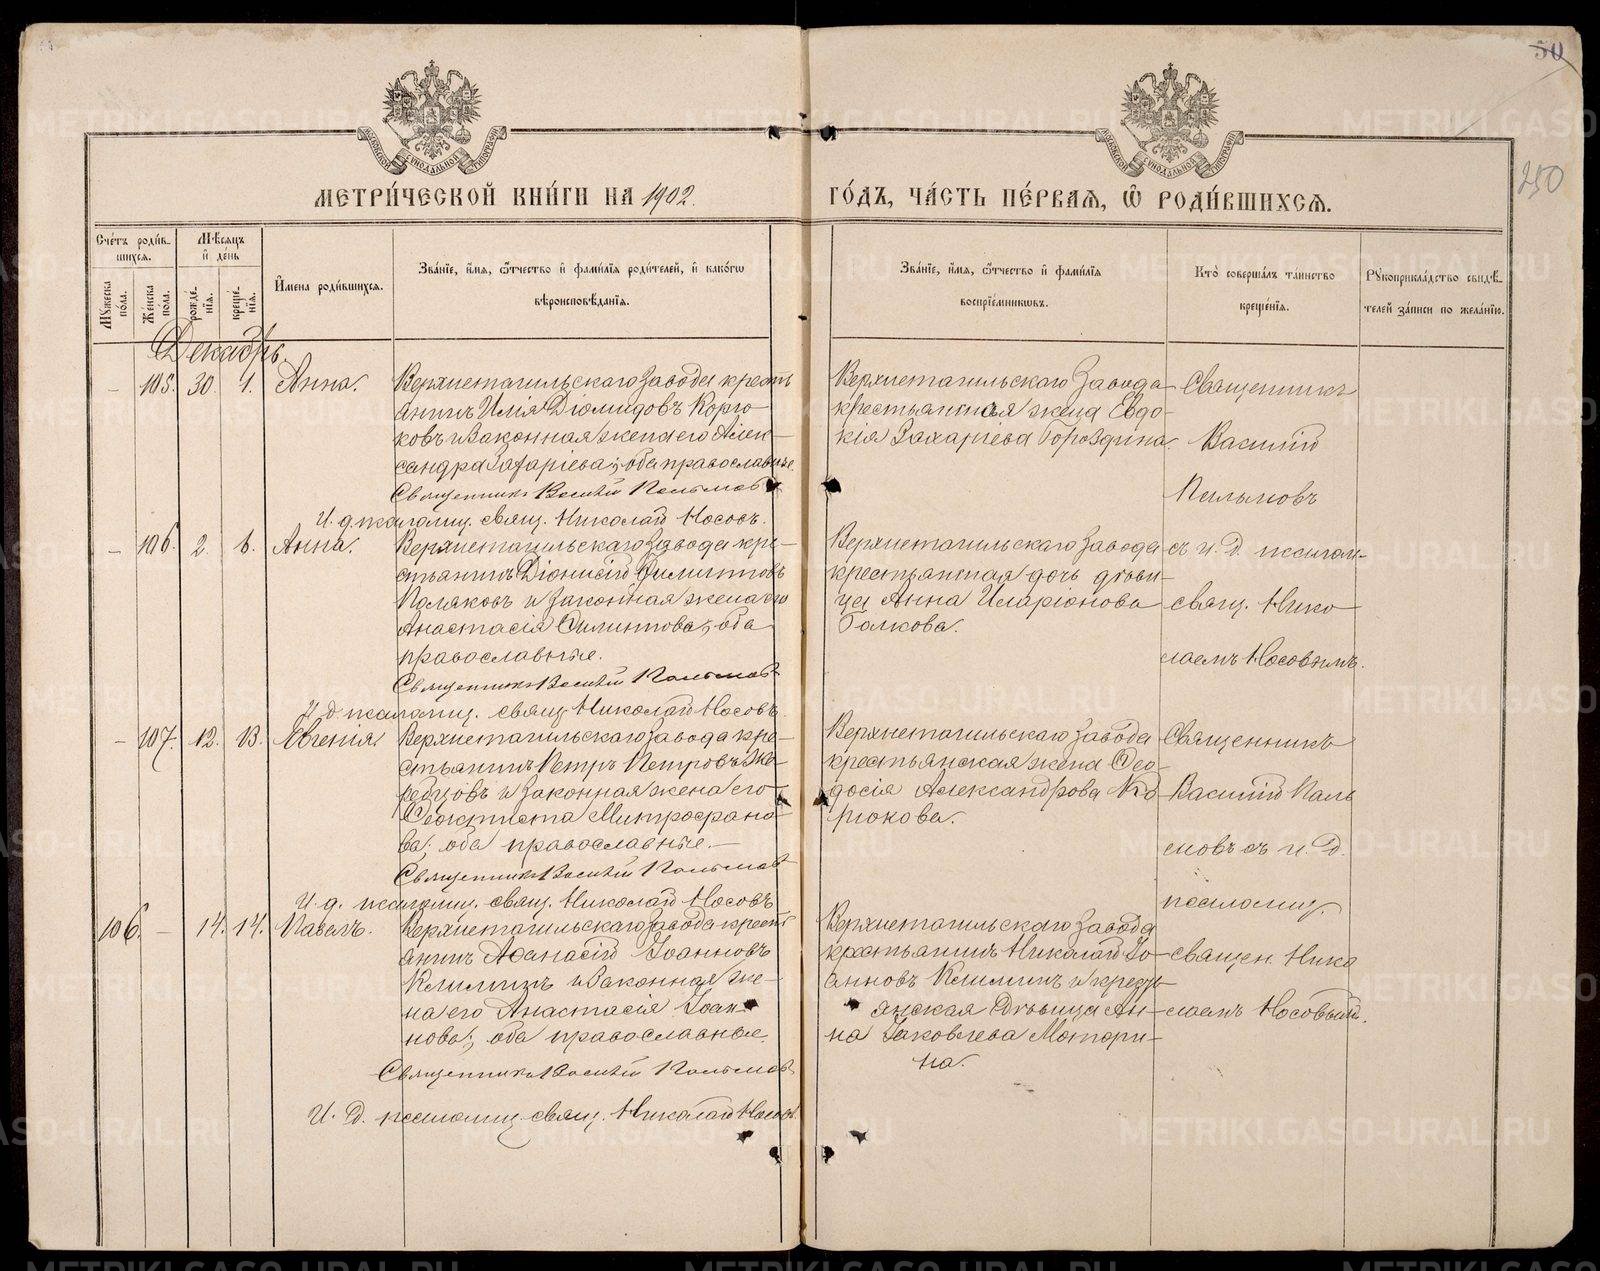 50
250
МЕТРИ́ЧЕСКОЙ КНИ́ГИ НА 1902.
ГО́ДЪ, ЧА́СТЬ ПЕ́РВАѦ, Ѡ҆ РОДИ́ВШИХСѦ.
Сче́тъ роди́в-
шихсѧ.
Мꙋ́жеска по́ла.
Же́нска по́ла.
Мѣ́сѧцъ
и҆ де́нь
рожде́-
нїѧ.
креще́-
нїѧ.
И҆мена̀ роди́вшихсѧ.
Зва́нїе, и҆́мѧ, ѻ҆́тчество и҆ фами́лїѧ роди́телей, и҆ како́гѡ
вѣроисповѣ́данїѧ.
Зва́нїе, и҆́мѧ, ѻ҆́тчество и҆ фами́лїѧ
воспрїе́мникѡвъ.
Кто̀ соверша́лъ та́инство
креще́нїѧ.
Рꙋкоприкла́дство свидѣ́-
телей за́писи по жела́нїю.
Декабрь.
– 105. 30. 1. Анна.
Верхнетагильскаго Завода кресть
янинъ Илія Діомидовъ Корю-
ковъ и законная жена его Алек-
сандра Захаріева; оба православные.
Священникъ Василій Пальмовъ
И. д. псаломщ. свящ. Николай Носовъ.
Верхнетагильскаго Завода
крестьянская жена Евдо-
кія Захаріева Бороздина.
Священникъ
Василій
Пальмовъ
съ и. д. псалом-
свящ. Нико-
лаемъ Носовымъ.
– 106. 2. 6. Анна.
Верхнетагильскаго Завода кре-
стьянинъ Діонисій Филипповъ
Поляковъ и законная жена его
Анастасія Филиппова; оба
православные.
Священникъ Василій Пальмовъ
И. д. псаломщ. свящ. Николай Носовъ.
Верхнетагильскаго Завода
крестьянская дочь дѣви-
ца Анна Иларіонова
– 107. 12. 13. Евгенія.
Верхнетагильскаго Завода кре-
стьянинъ Петръ Петровъ Же-
ребцовъ и законная жена его
Ѳеоктиста Митрофано-
ва; оба православные.–
Священникъ Василій Пальмовъ
И. д. псаломщ. свящ. Николай Носовъ
Верхнетагильскаго Завода
крестьянская жена Ѳео-
досія Александрова
Священникъ
Василій Паль
мовъ съ и. д.
псаломщ.
священ. Нико
лаемъ Носовым.
106. – 14. 14. Павелъ.
Верхнетагильскаго Завода кресть
янинъ Аѳанасій Іоанновъ
Климинъ и законная же-
на его Анастасія Іоан-
нова; оба православные.
Священникъ Василій Пальмовъ
И. д. псаломщ. свящ. Николай Носовъ.
Верхнетагильскаго Завода
крестьянинъ Николай Іо-
анновъ Климинъ и кресть
янская дѣвица Ан-
на Іаковлева Матори-
на.